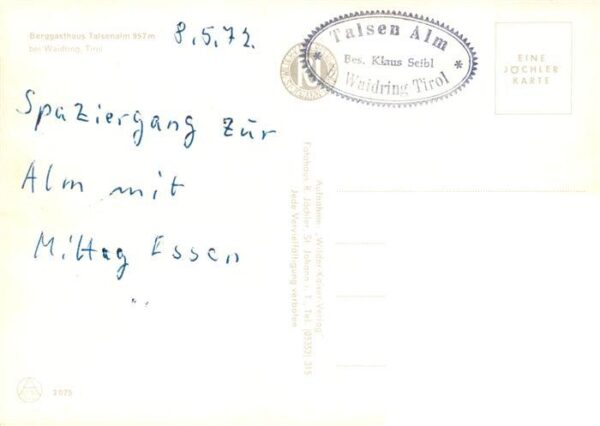 Berggasthaus Talsenalm 957m
bei Waidring, Tirol
8.5.72.
Talsen Alm
* Bes. Klaus Seibl *
in Waidring Tirol
EINE
JÖCHLER
KARTE
Spaziergang zur
Alm mit
Mittag Essen
Aufnahme: „Wilder-Kaiser-Verlag"
Fotohaus R. Jöchler, St. Johann i. T., Tel. (05352) 315
Jede Vervielfältigung verboten
2075